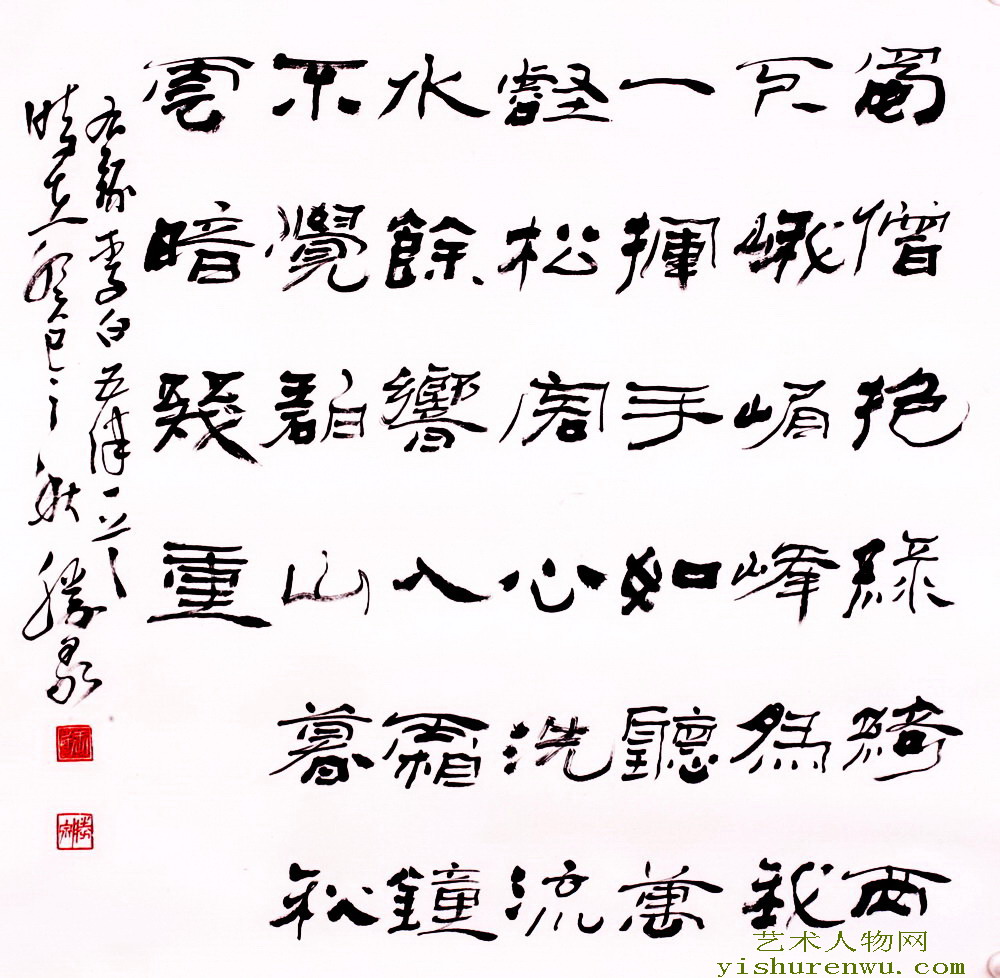 蜀僧抱綠綺西
下峨嵋峰為我
一揮手如聽萬
壑松客心洗流
水餘響入霜鐘
不覺碧山暮秋
雲暗幾重
右錄李白五律一首
時在癸巳之秋
艺术人物网
yishurenwu.com